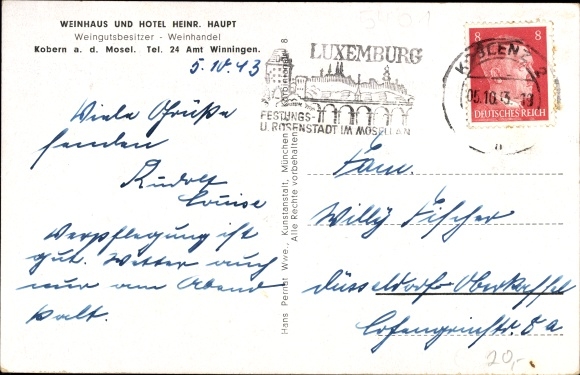 WEINHAUS UND HOTEL HEINR. HAUPT
Weingutsbesitzer - Weinhandel
Kobern a. d. Mosel. Tel. 24 Amt Winningen.
5.10.43
Viele Grüße
senden
Rudolf
Louise
Verpflegung ist
gut. Wetter auch
nur am Abend
kalt.
Hans Pernat Wwe., Kunstanstalt, München 8
Alle Rechte vorbehalten
LUXEMBURG
FESTUNGS-
U. ROSENSTADT IM MOSELLAN
KOBLENZ 2
05.10.43
8 8
DEUTSCHES REICH
Fam.
Willy Fischer
Düsseldorf-Oberkassel
Lohengrinstr. 5a
20,-